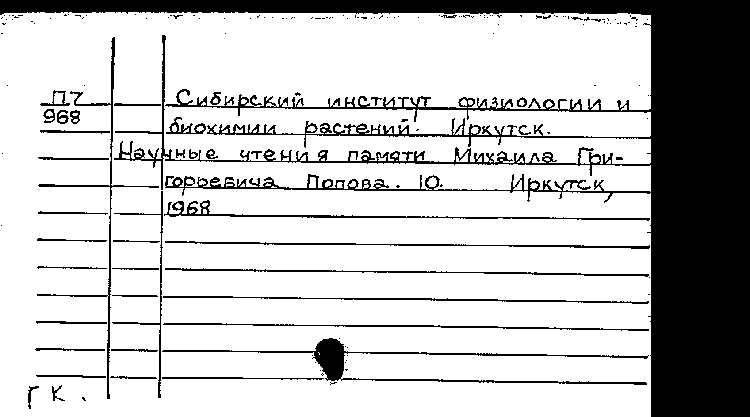 П7 Сибирский институт физиологии и
968 биохимии растений. Иркутск.
Научные чтения памяти Михаила Гри-
горьевича Попова. 10. Иркутск,
1968
г к.